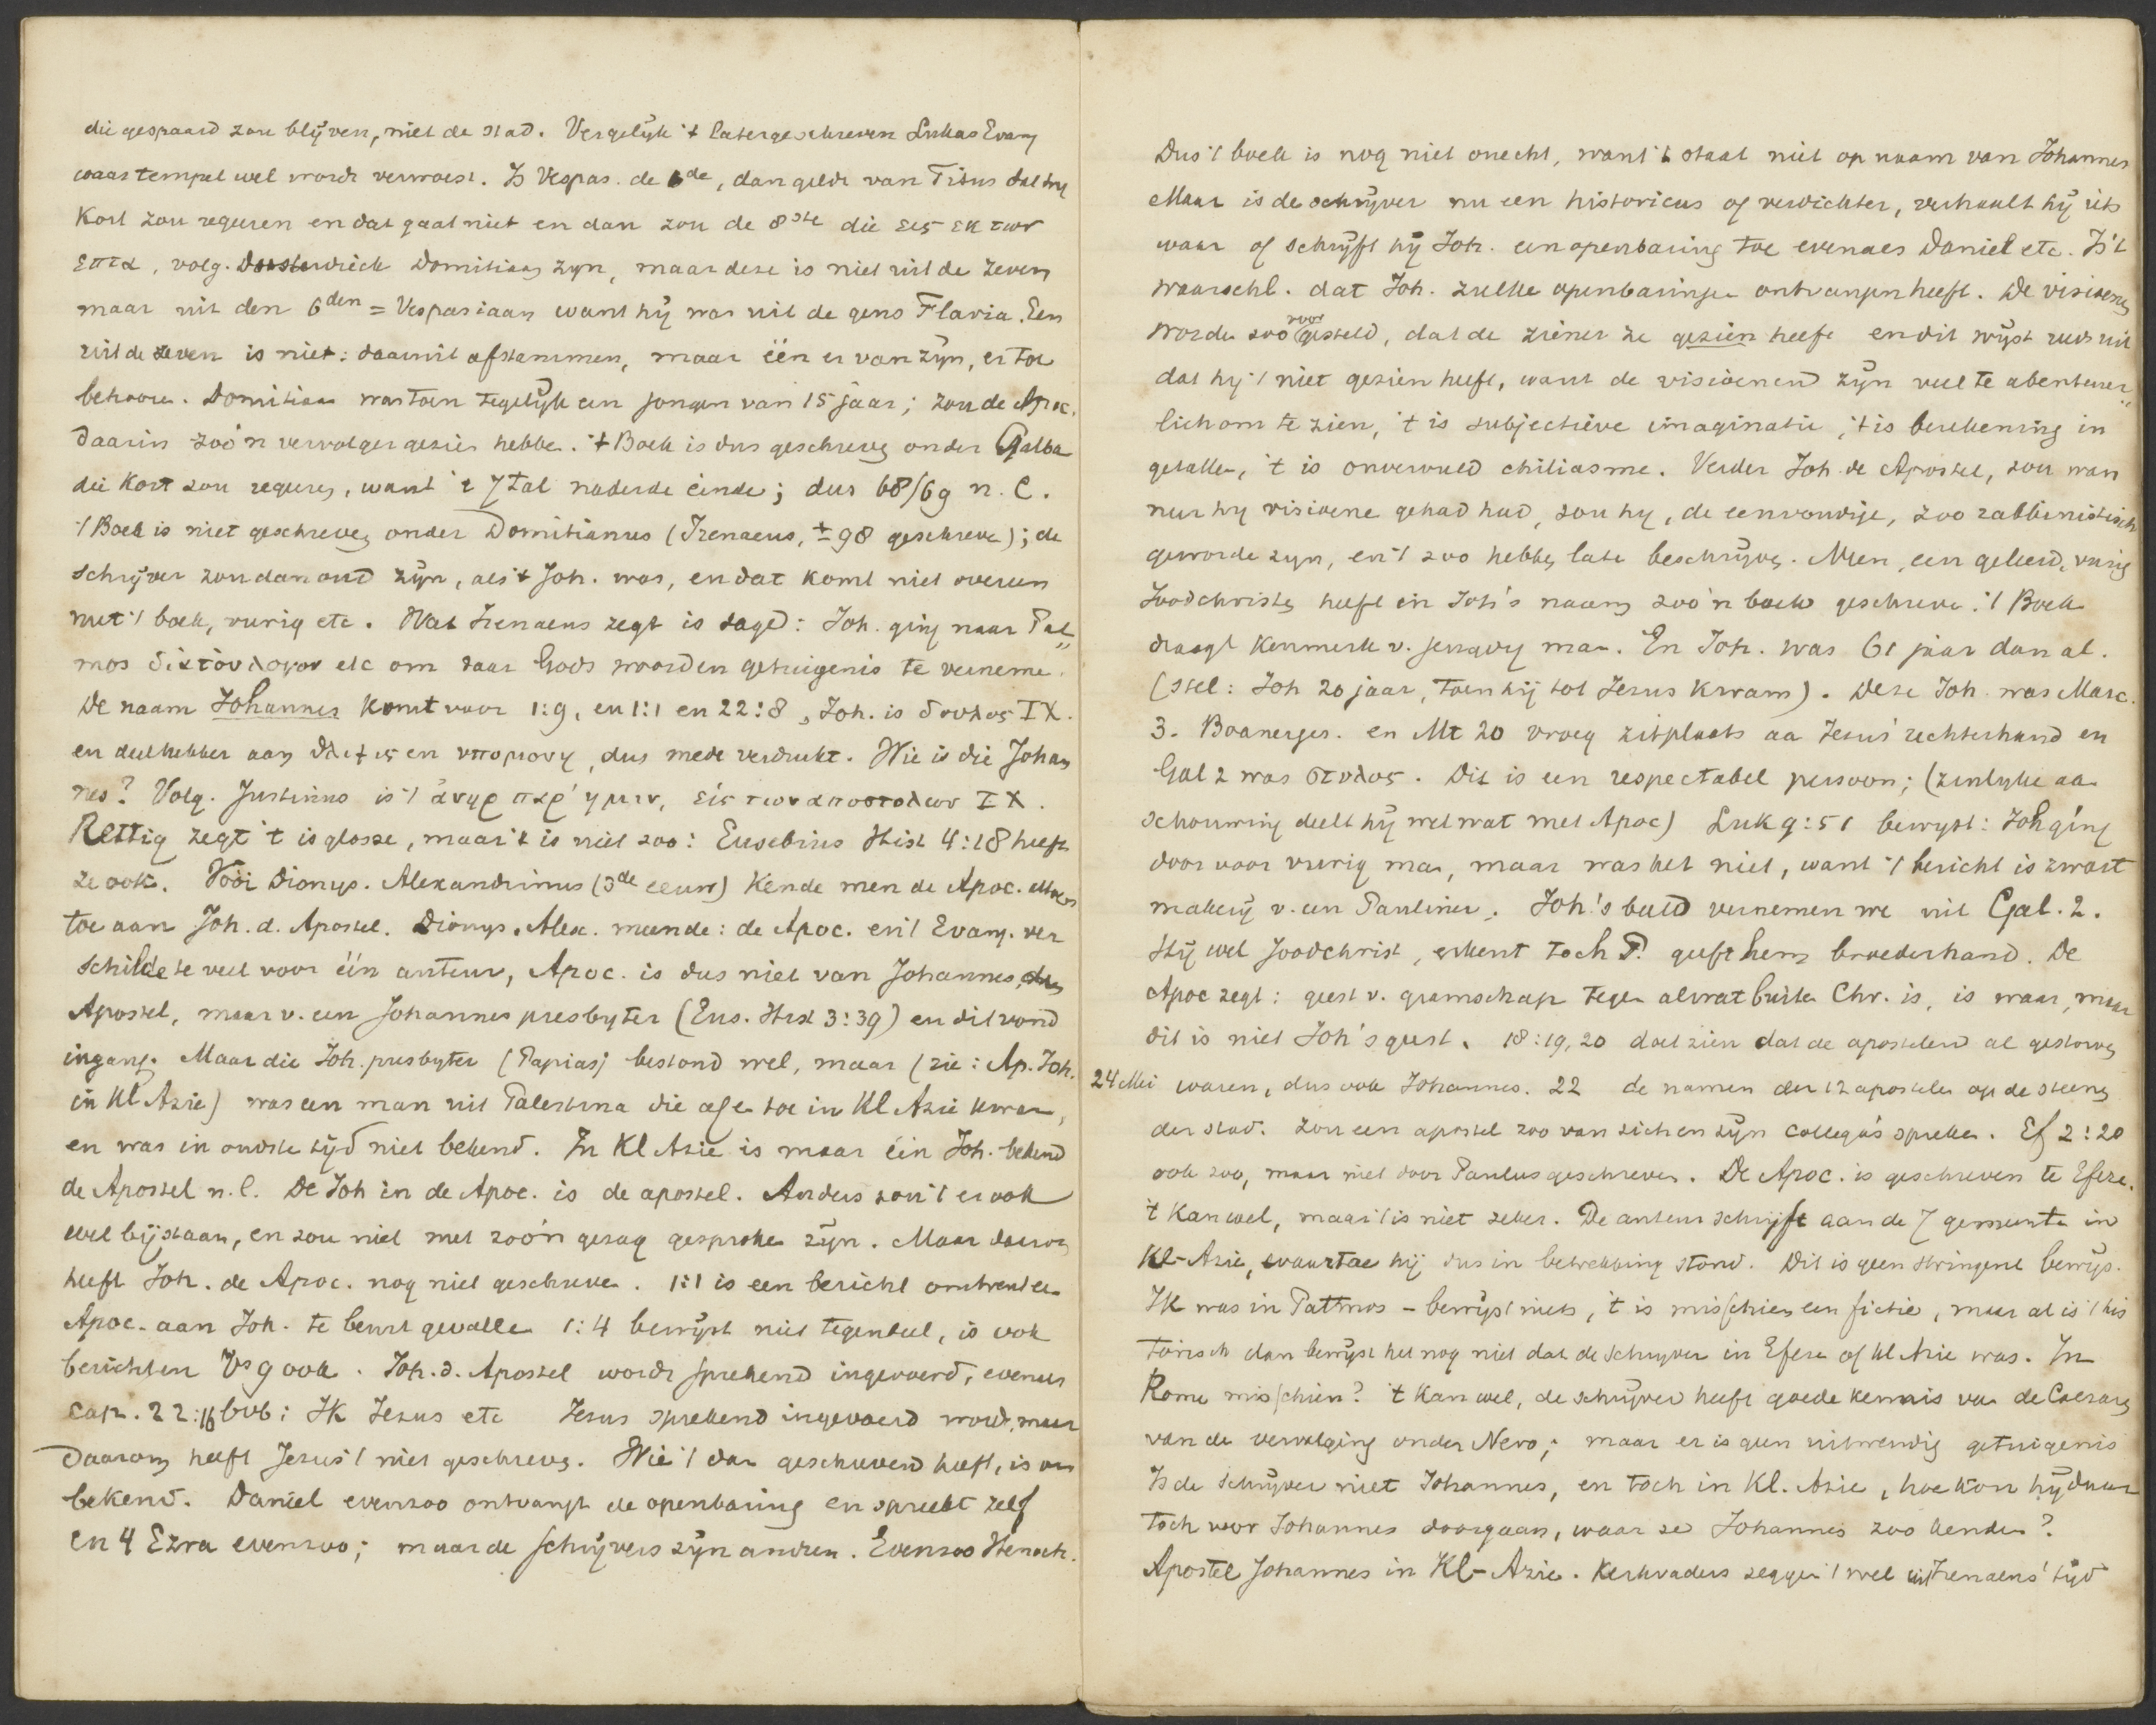 die gespaard zou blijven, niet de stad. Vergelijk 't latergeschreven Lukas Evang
waar tempel wel wordt verwoest. Is Vespas. de 6de, dan geldt van Titus dat hij
kort zou regeeren en dat gaat niet en dan zou de 8ste die εις εκ των
επτα, volg. Domitiaan zijn, maar deze is niet uit de zeven
maar uit den 6den = Vespasiaan want hij was uit de gens Flavia. Een
uit de zeven is niet: daaruit afstammen, maar één er van zijn, er toe
behooren. Domitiaan was toen tegelijk een jongen van 15 jaar; zou de Apoc.
daarin zoo'n vervolger gezien hebbe. 't Boek is dus geschreven onder Galba
die kort zou regeren, want 't 7tal naderde einde; dus 68/69 n. C.
't Boek is niet geschreven onder Domitianus (Irenaeus, ± 98 geschreve); de
schrijver zou dan oud zijn, als 't Joh. was, en dat komt niet overeen
met 't boek, vurig etc. Wat Irenaeus zegt is sage: Joh. ging naar Pat„
mos διὰ τὸν λογον etc om daar Gods woorden getuigenis te verneme.
De naam Johannes komt voor 1:9, en 1:1 en 22:8, Joh. is δουλος ΙΧ.
en deelhebber aan θλιψις en υπομονη, dus mede verdrukt. Wie is die Johan
nes? Volg. Justinus is 't ἀνηρ παρ' ημιν, εἱς των αποστολων ΙΧ.
Rettig zegt 't is glosse, maar 't is niet zoo: Eusebius Hist 4:18 heeft
ze ook. Vóór Dionys. Alexandrinus (3de eeuw) kende men de Apoc.
toe aan Joh. d. Apostel. Dionys. Alex. meende: de Apoc. en 't Evang. ver
schilde te veel voor één auteur, Apoc. is dus niet van Johannes, den
Apostel, maar v. een Johannes presbyter (Eus. Hist 3:39) en dit vond
ingang. Maar die Joh. presbyter (Papias) bestond wel, maar (zie: Ap. Joh.
in Kl Azie) was een man uit Palestina die af en toe in Kl Azie kwam,
en was in oudste tijd niet bekend. In Kl Azie is maar één Joh. bekend
de Apostel n.l. De Joh in de Apoc. is de apostel. Anders zou 't er ook
wel bijstaan, en zou niet met zoo'n gezag gesproke zijn. Maar daarom
heeft Joh. de Apoc. nog niet geschreve. 1:1 is een bericht omtrent een
Apoc. aan Joh. te beurt gevalle 1:4 bewijst niet tegendeel, is ook
berichten Vs 9 ook. Joh. d. Apostel wordt sprekend ingevoerd, evenals
cap. 22:16 bvb: Ik Jezus etc Jezus sprekend ingevoerd wordt, maar
daarom heeft Jezus 't niet geschreven. Wie 't dan geschreven heeft, is on
bekend. Daniel evenzoo ontvangt de openbaring en spreekt zelf
en 4 Ezra evenzoo; maar de schrijvers zijn andren. Evenzoo Henoch.
Dus 't boek is nog niet onecht, want 't staat niet op naam van Johannes
Maar is de schrijver nu een historicus of verdichter, verhaalt hij iets
waar of schrijft hij Joh. een openbaring toe evenals Daniel etc. Is 't
waarschl. dat Joh. zulke openbaringen ontvangen heeft. De visioenen
worde zoo voorgesteld, dat de ziener ze gezien heeft en dit wijst reeds uit
dat hij 't niet gezien heeft, want de visioenen zijn veel te abenteuer„
lich om te zien, 't is subjectieve imaginatie, 't is berekening in
getallen, 't is onvervuld chiliasme. Verder Joh. de Apostel, zou wan
neer hij visioene gehad had, zou hij, de eenvoudige, zoo rabbinistisch
geworde zijn, en 't zoo hebben late beschrijve. Neen, een geleerd, vurig
Joodchristen heeft in Joh's naam zoo'n boek geschreve. 't Boek
draagt kenmerk v. jeugdig man. En Joh. was 61 jaar dan al.
(stel: Joh 20 jaar, toen hij tot Jezus kwam). Deze Joh was Marc.
3. Boanerges. en Mt 20 vroeg zitplaats aa Jezus' rechterhand en
Gal 2 was στυλος. Dit is een respectabel persoon; (zinlijke aan
schouwing deelt hij wel wat met Apoc) Luk 9:51 bewijst: Joh ging
door voor vurig man, maar was het niet, want 't bericht is zwart
makerij v. een Pauliner. Joh.'s beeld vernemen we uit Gal. 2.
Hij wel Joodchrist, erkent toch P. geeft hem broederhand. De
Apoc zegt: geest v. gramschap tegen alwat buiten Chr. is, is waar, maar
dit is niet Joh's geest. 18:19,20 doet zien dat de apostelen al gestorven
24 Mei waren, dus ook Johannes. 22 de namen der 12 apostelen op de steenen
der stad. Zou een apostel zoo van zich en zijn collega's spreken. Ef 2:20
ook zoo, maar niet door Paulus geschreven. De Apoc. is geschreven te Efeze.
't Kan wel, maar 't is niet zeker. De auteur schrijft aan de 7 gemeente in
Kl-Azie, waartoe hij dus in betrekking stond. Dit is geen stringent bewijs.
Ik was in Patmos – bewijst niets, 't is misschien een fictie, maar al is 't his
torisch dan bewijst het nog niet dat de schrijver in Efeze of Kl Azie was. In
Rome misschien? 't Kan wel, de schrijver heeft goede kennis van de Caesars
van de vervolging onder Nero; maar er is geen uitwendig getuigenis
Is de schrijver niet Johannes, en toch in Kl. Azie, hoe kon hij daar
toch voor Johannes doorgaan, waar ze Johannes zoo kenden?
Apostel Johannes in Kl-Azie. Kerkvaders zeggen 't wel uit Irenaeus' tijd